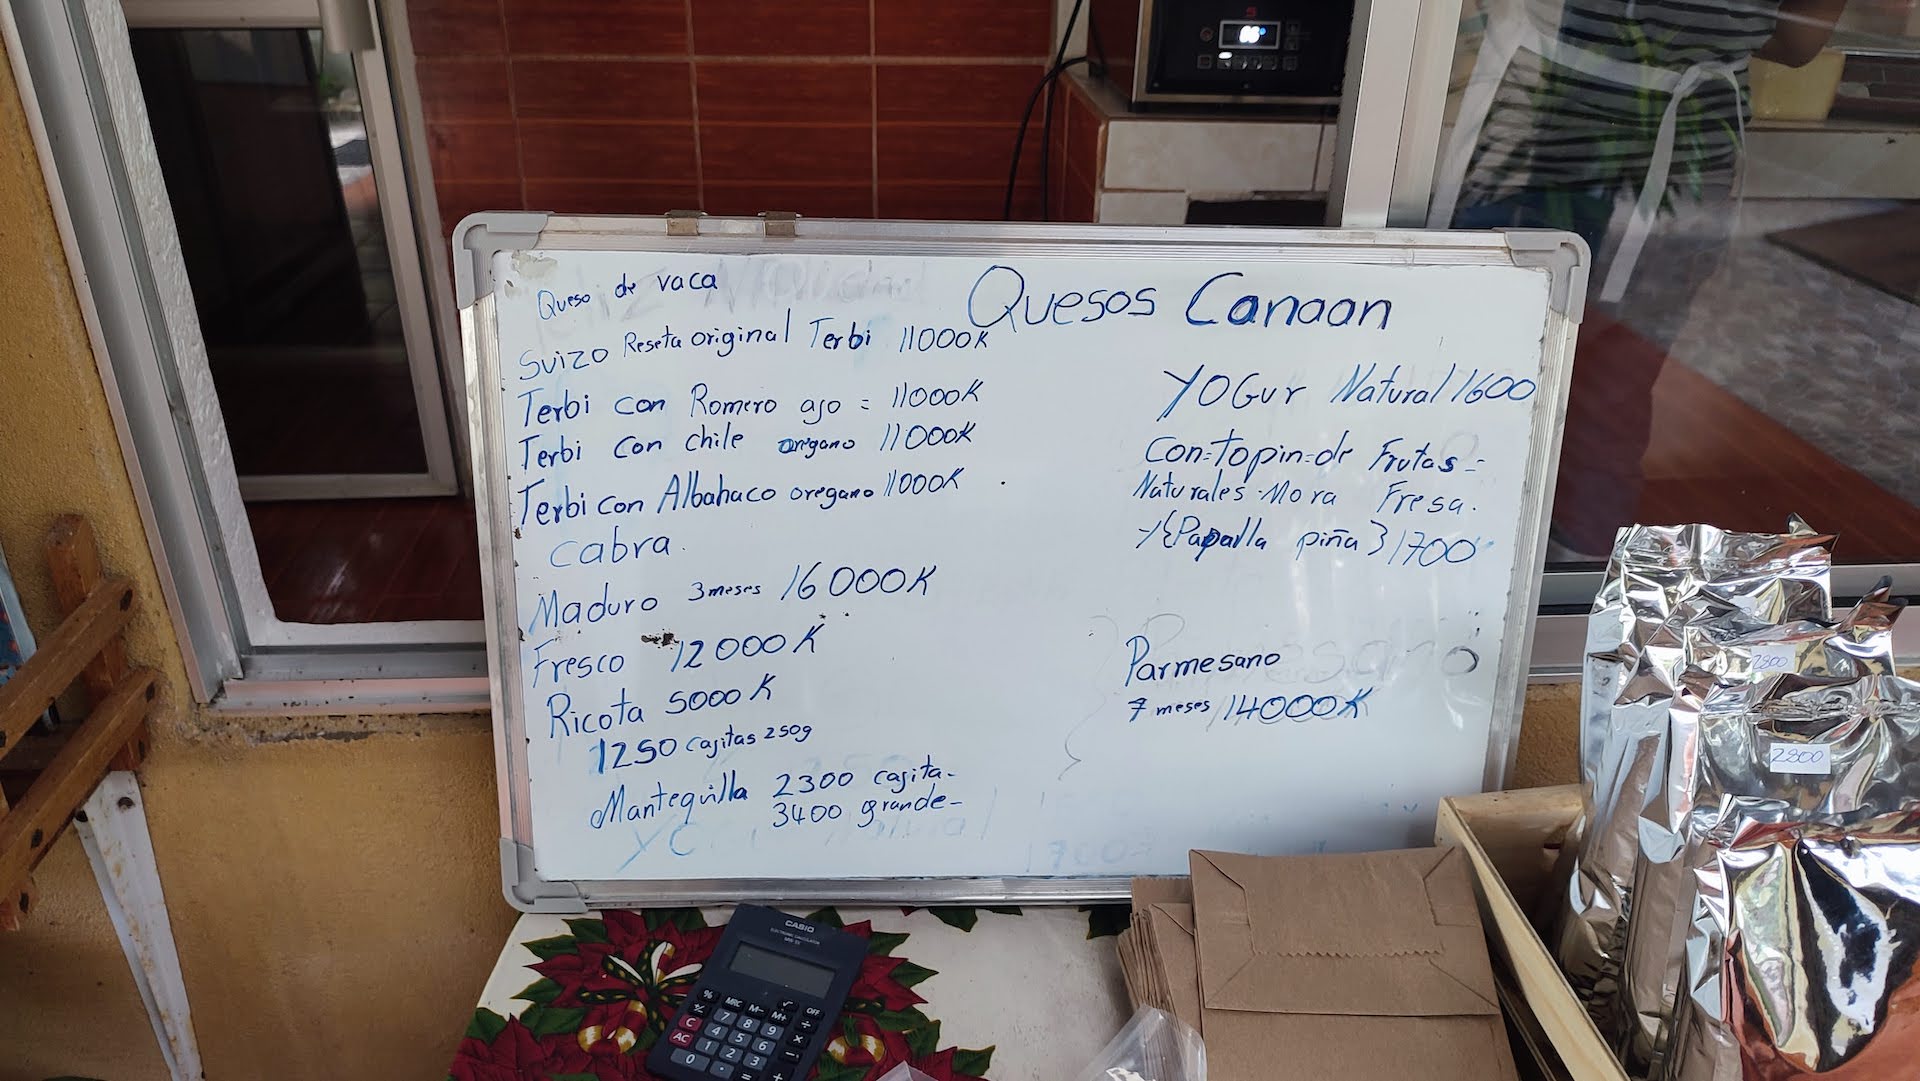 Queso de vaca
Suizo Reseta original Terbi 11000K
Terbi con Romero ajo = 11000K
Terbi con chile oregano 11000K
Terbi con Albahaco oregano 11000K
cabra.
Maduro 3 meses 16000K
Fresco 12000K
Ricota 5000K
1250 cajitas 250g
Mantequilla 2300 cajita-
3400 grande-
Quesos Canaan
YOGur Natural 1600
Con=topin=de Frutas=
Naturales·Mora Fresa.
Y{Papalla piña} 1700
Parmesano
7 meses 14000K
2800
2800
CASIO
ELECTRONIC CALCULATOR
% MRC M- √ OFF
+/- 7 8 9 M+ ÷
C 4 5 6 ×
AC 1 2 3 -
0 . = +